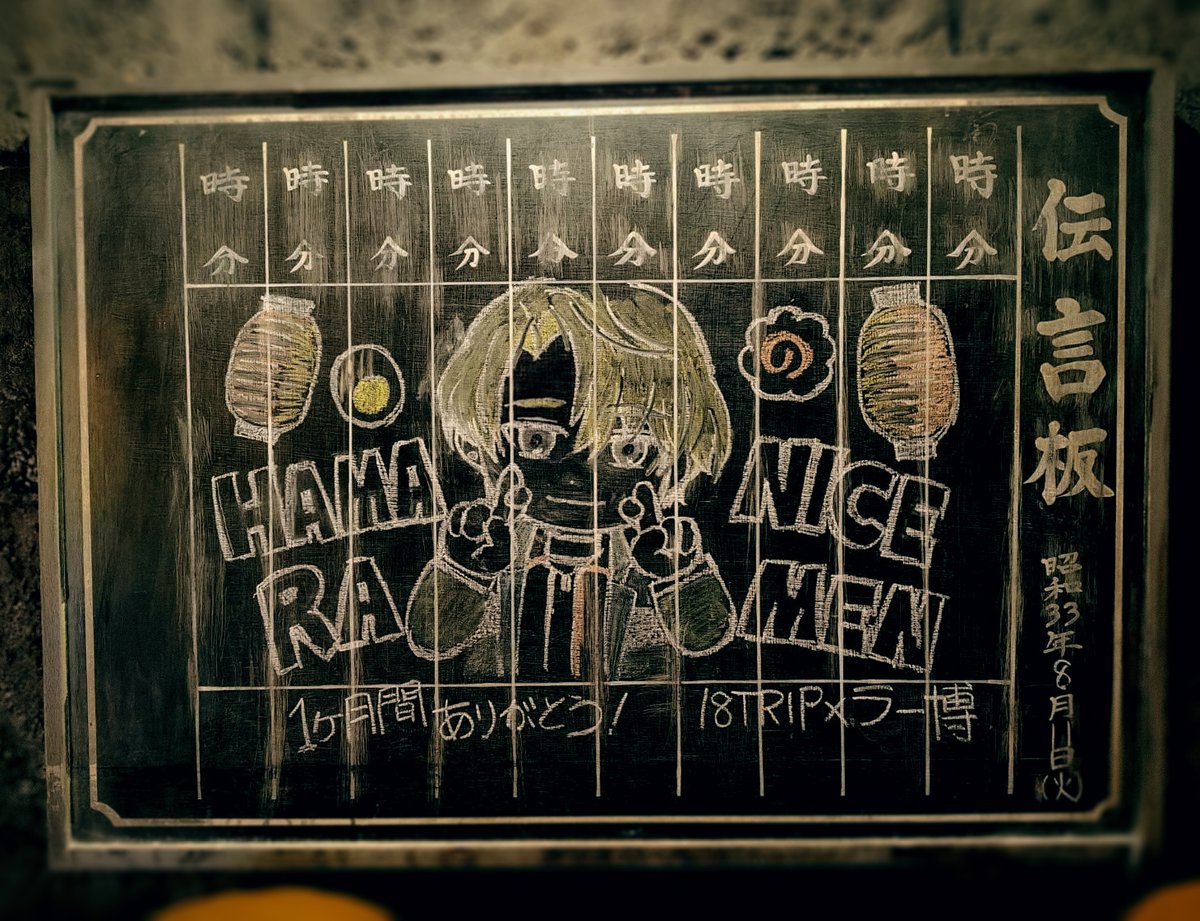 伝言板
昭和33年8月11日(火)
時 時 時 時 時 時 時 時 時 時
分 分 分 分 分 分 分 分 分 分
の
HAMA NICE
RA MEN
1ヶ月間ありがとう! 18TRIP×ラー博